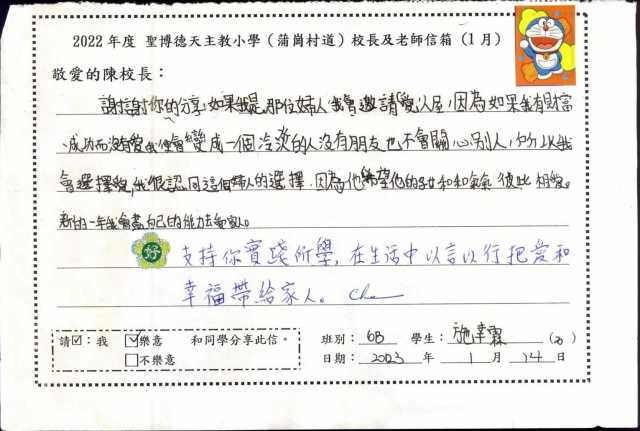 2022 年度 聖博德天主教小學(蒲崗村道)校長及老師信箱(1月)
敬愛的陳校長:
謝謝你的分享,如果我是那位婦人,我會邀請愛入屋,因為如果我有財富
、成功而沒有愛我便會變成一個冷淡的人沒有朋友也不會關心別人,所以我
會選擇愛,我很認同這個婦人的選擇,因為他希望他的子女和和氣氣 彼此相愛。
新的一年我會盡自己的能力去愛家人。
好 支持你實踐所學,在生活中以言以行把愛和
幸福帶給家人。
請☑:我 ☑樂意 和同學分享此信。 班別: 6B 學生: 施幸霖 (20)
□不樂意 日期: 2023 年 1 月 14 日